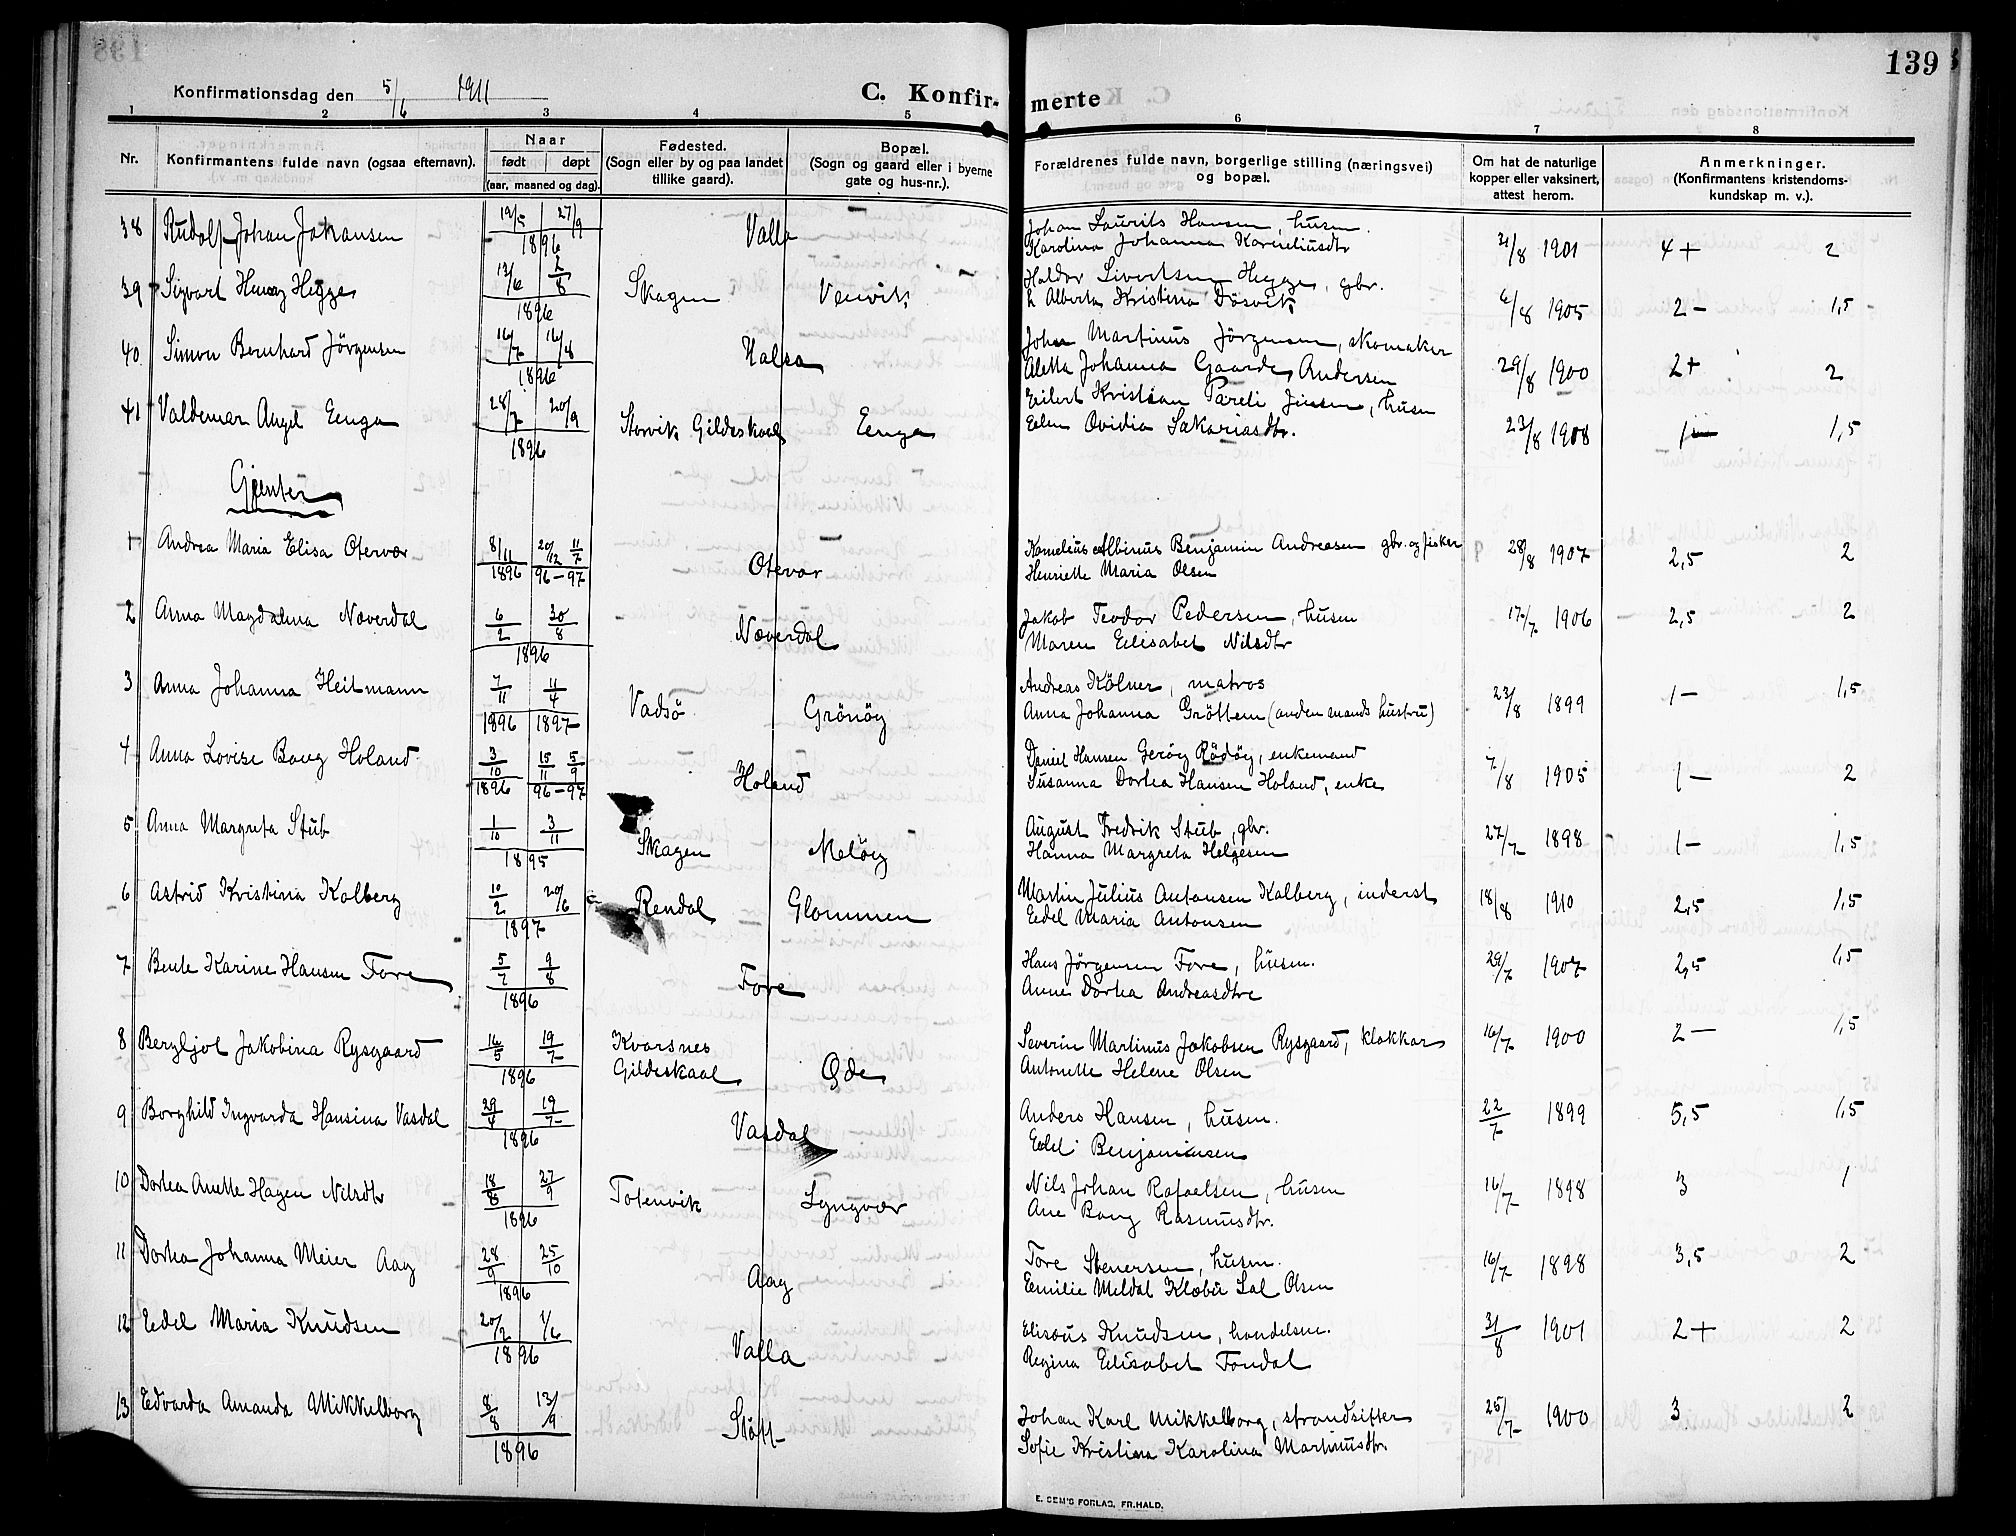 139
Konfirmationsdag den 5/6 1911
C. Konfir- merte
1 2 3 4 5 6 7 8
Nr. Konfirmantens fulde navn (ogsaa efternavn). Naar født døpt (aar, maaned og dag). Fødested. (Sogn eller by og paa landet tillike gaard). Bopæl. (Sogn og gaard eller i byerne gate og hus-nr.). Forældrenes fulde navn, borgerlige stilling (næringsvei) og bopæl. Om hat de naturlige kopper eller vaksinert, attest herom. Anmerkninger. (Konfirmantens kristendoms- kundskap m. v.).
38 Rudolf Johan Johansen 19/5 27/9 1896 Valla Johan Laurits Hansen, husm. 31/8 1901 4+ 2
Karolina Johanna Korneliusdtr
39 Sigvart Henry Hegge 13/6 2/8 1896 Skagen Venvik Haldor Sivertsen Hegge, gbr. 6/8 1905 2- 1,5
Alberta Kristina Dösvik
40 Simon Bernhard Jörgensen 16/7 16/8 1896 Halsa Johan Martinus Jörgensen, skomaker 29/8 1900 2+ 2
Aletta Johanna Gaarder Andersen
41 Valdemar Angel Eenga 28/7 20/9 1896 Storvik Gildeskaal Eenga Eilert Kristian Pareli Jensen, husm 23/8 1908 1- 1,5
Elen Ovidia Sakariasdtr.
Gjenter
1 Andrea Maria Elisa Otervær 8/11 1896 20/12 11/7 96-97 Otervær Kornelius Albinus Benjamin Andreasen gbr. og fisker 28/8 1907 2,5 2
Henriette Maria Olsen
2 Anna Magdalena Næverdal 6/2 30/8 1896 Næverdal Jakob Teodor Pedersen, husm 17/7 1906 2,5 2
Maren Elisabet Nilsdtr
3 Anna Johanna Heitmann 7/11 1896 11/4 1897 Vadsö Grönöy Andreas Kölner, matros 23/8 1899 1- 1,5
Anna Johanna Gröttem (anden mands hustru)
4 Anna Lovise Bang Holand 3/10 1896 15/11 5/9 96-97 Holand Daniel Hansen Geröy Rödöy, enkemand 7/8 1905 1- 2
Susanna Dortea Hansen Holand, enke
5 Anna Margreta Stub 1/10 3/11 1895 Skagen Melöy August Fredrik Stub, gbr. 27/7 1898 1- 1,5
Hanna Margreta Helgesen
6 Astrid Kristina Kolberg 10/2 20/6 1897 Rendal Glommen Martin Julius Antonsen Kalberg, inderst 18/8 1910 2,5 1,5
Edel Maria Antonsen
7 Bente Karine Hansen Fore 5/7 9/8 1896 Fore Hans Jörgensen Fore, husm. 29/7 1907 2,5 1,5
Anne Dortea Andreasdtr
8 Bergljot Jakobina Rysgaard 16/5 19/7 1896 Kvarsnes Gildeskaal Øde Severin Martinus Jakobsen Rysgaard, klokkar 16/7 1900 2- 1,5
Antonette Helene Olsen
9 Borghild Ingvarda Hansina Vasdal 29/4 19/7 1896 Vasdal Anders Hansen, husm. 22/7 1899 5,5 1,5
Edel Benjaminsen
10 Dortea Anette Hagen Nilsdtr 18/8 27/9 1896 Totenvik Lyngvær Nils Johan Rafaelsen, husm 16/7 1898 3 1
Ane Bang Rasmusdtr.
11 Dortea Johanna Meier Aag 28/9 25/10 1896 Aag Tore Stenersen, husm. 16/7 1898 3,5 2
Emilie Meldal Olsen
12 Edel Maria Knudsen 20/2 1/6 1896 Valla Elisæus Knudsen, handelsm. 31/8 1901 2+ 2
Regina Elisabet Fondal
13 Edvarda Amanda Mikkelborg 8/8 13/9 1896 Stött Johan Karl Mikkelborg, strandsitter 25/7 1900 3 2
Sofie Kristina Karolina Martinusdtr.
E. SEM'S FORLAG, FR.HALD.